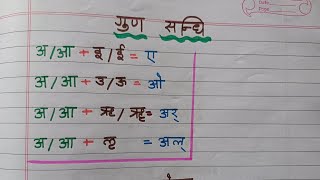 गुण सन्धि
अ/आ + इ/ई = ए
अ/आ + उ/ऊ = ओ
अ/आ + ऋ/ॠ = अर्
अ/आ + ऌ = अल्